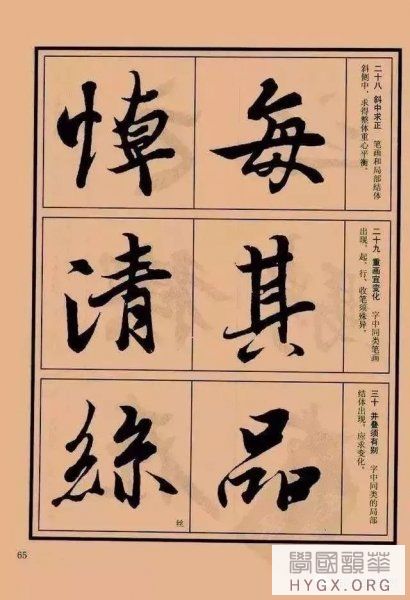 二十八 斜中求正 笔画和局部结体
斜侧中，求得整体重心平衡。
每
悼
二十九 重画宜变化 字中同类笔画
出现，起、行、收笔须殊异。
其
清
三十 并叠须有别 字中同类的局部
结体出现，应求变化。
品
絲
丝
65
學國韻華
HYGX.ORG